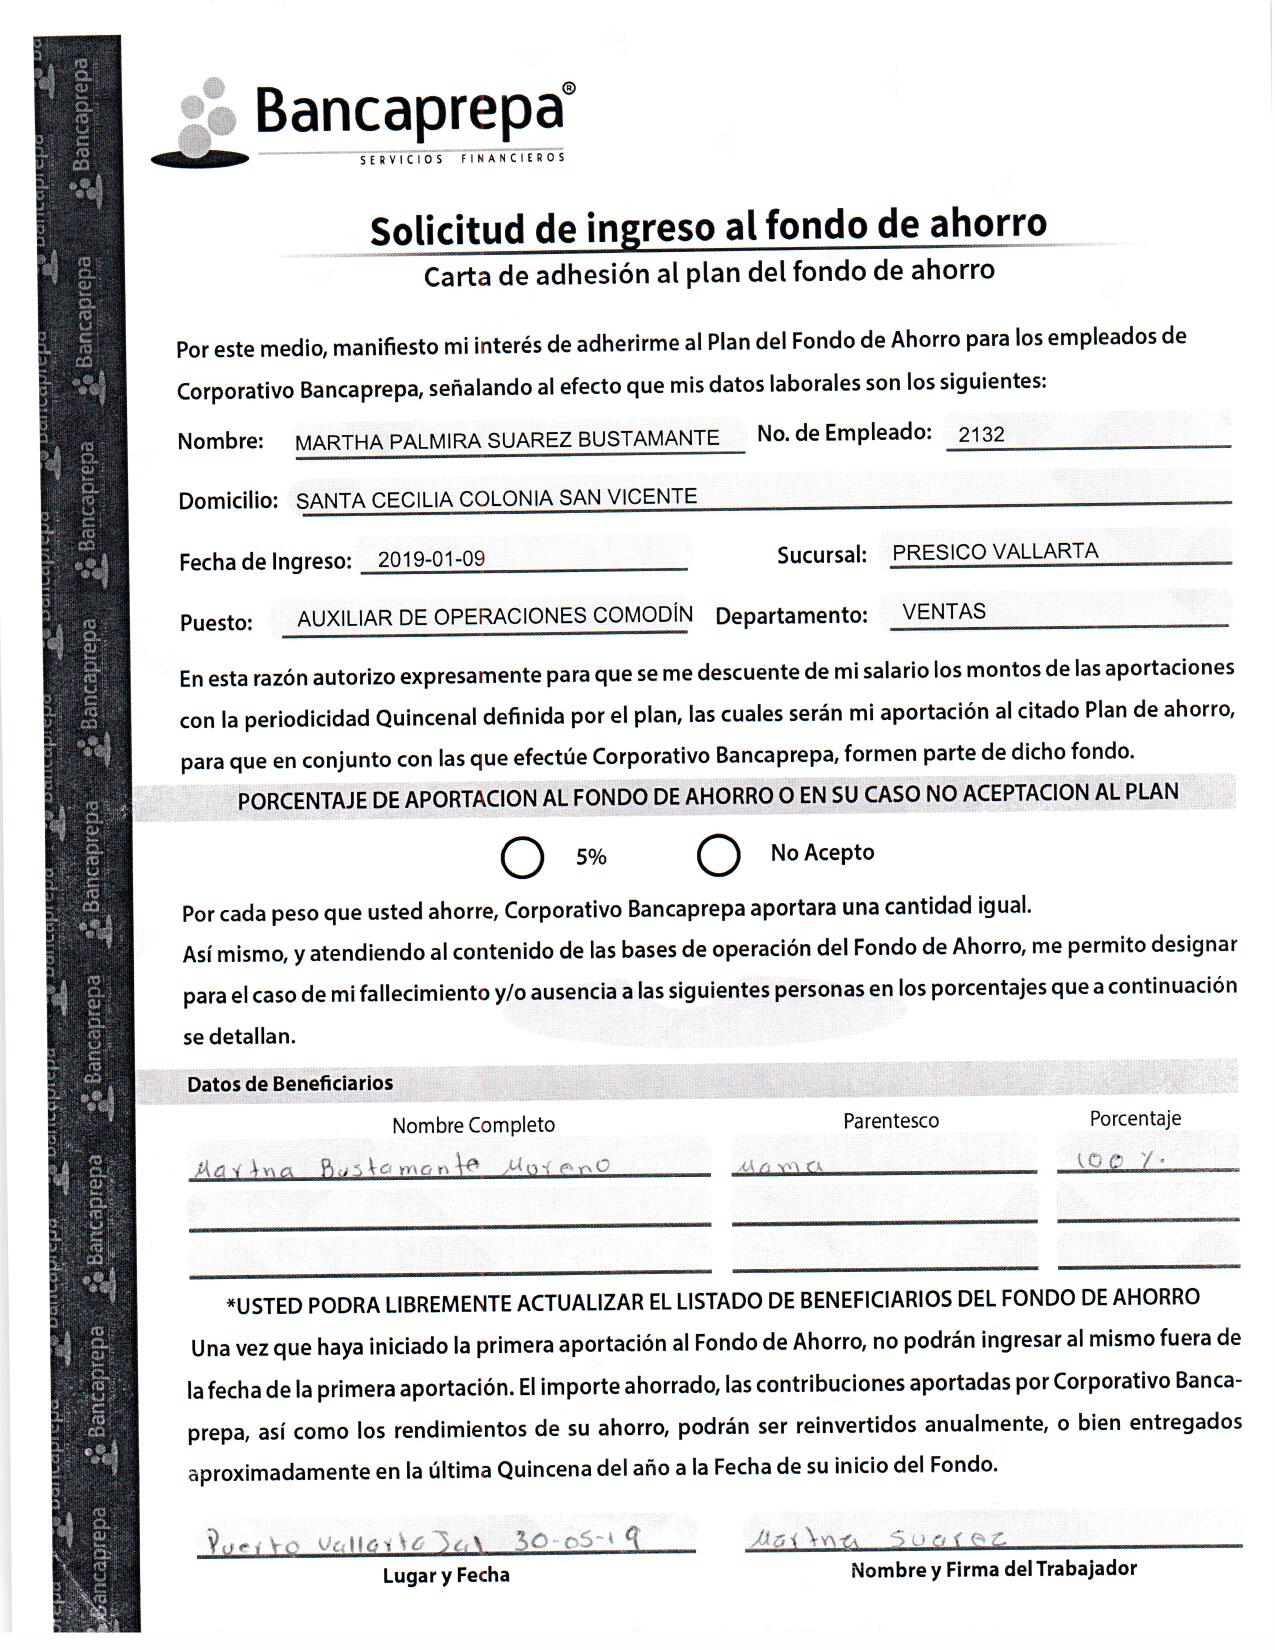 Bancaprepa®
SERVICIOS FINANCIEROS
Solicitud de ingreso al fondo de ahorro
Carta de adhesión al plan del fondo de ahorro
Por este medio, manifiesto mi interés de adherirme al Plan del Fondo de Ahorro para los empleados de
Corporativo Bancaprepa, señalando al efecto que mis datos laborales son los siguientes:
Nombre: MARTHA PALMIRA SUAREZ BUSTAMANTE No. de Empleado: 2132
Domicilio: SANTA CECILIA COLONIA SAN VICENTE
Fecha de Ingreso: 2019-01-09 Sucursal: PRESICO VALLARTA
Puesto: AUXILIAR DE OPERACIONES COMODÍN Departamento: VENTAS
En esta razón autorizo expresamente para que se me descuente de mi salario los montos de las aportaciones
con la periodicidad Quincenal definida por el plan, las cuales serán mi aportación al citado Plan de ahorro,
para que en conjunto con las que efectúe Corporativo Bancaprepa, formen parte de dicho fondo.
PORCENTAJE DE APORTACION AL FONDO DE AHORRO O EN SU CASO NO ACEPTACION AL PLAN
5% No Acepto
Por cada peso que usted ahorre, Corporativo Bancaprepa aportara una cantidad igual.
Así mismo, y atendiendo al contenido de las bases de operación del Fondo de Ahorro, me permito designar
para el caso de mi fallecimiento y/o ausencia a las siguientes personas en los porcentajes que a continuación
se detallan.
Datos de Beneficiarios
Nombre Completo Parentesco Porcentaje
Martha Bustamante Moreno Mama 100 %.
*USTED PODRA LIBREMENTE ACTUALIZAR EL LISTADO DE BENEFICIARIOS DEL FONDO DE AHORRO
Una vez que haya iniciado la primera aportación al Fondo de Ahorro, no podrán ingresar al mismo fuera de
la fecha de la primera aportación. El importe ahorrado, las contribuciones aportadas por Corporativo Banca-
prepa, así como los rendimientos de su ahorro, podrán ser reinvertidos anualmente, o bien entregados
aproximadamente en la última Quincena del año a la Fecha de su inicio del Fondo.
Puerto Vallarta Jal 30-05-19 Martha Suarez
Lugar y Fecha Nombre y Firma del Trabajador